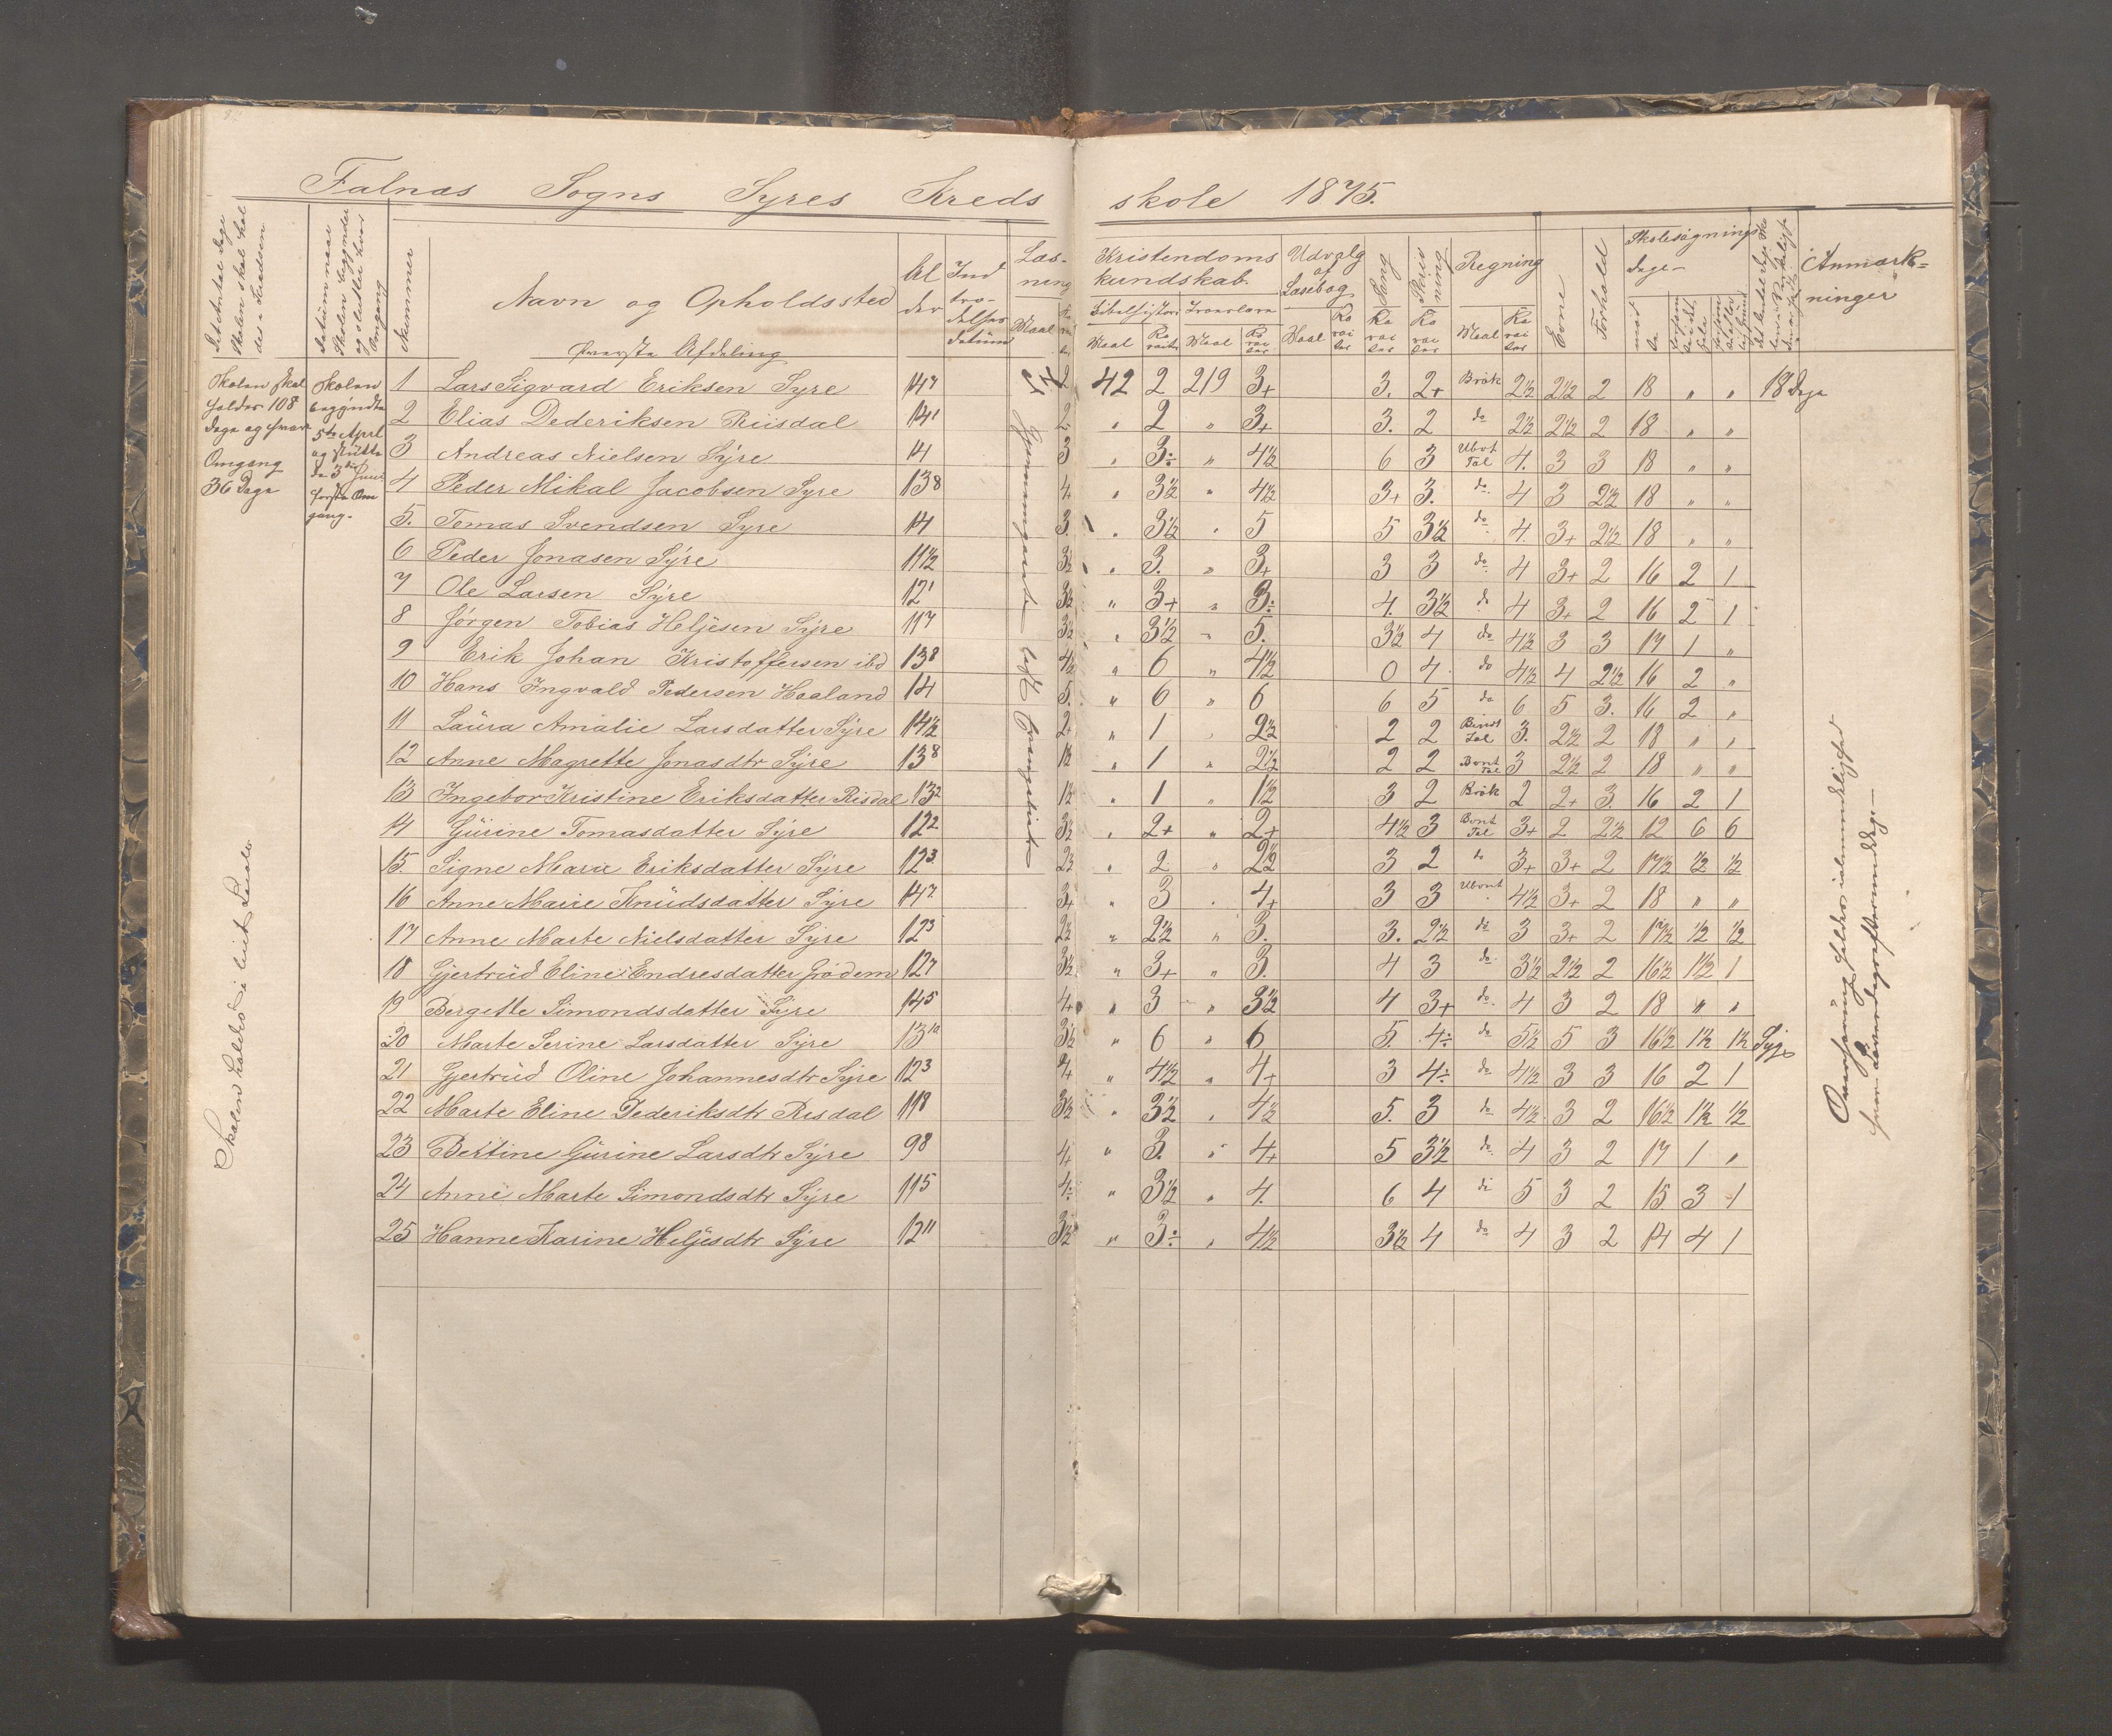 Falnæs Sogns Syres Kreds skole 1875.
Det Antal Dage
Skolen skal hol
des i Kredsen
Datum naar
Skolen begynder
og slutter hver
Omgang
Nummer
Navn og Opholdssted
Øverste Afdeling
Al
der
Ind
træ-
delses
datum
Læs-
ning
Maal
Ka
rak
ter
Kristendoms
kundskab.
Bibelhistorie
Troeslære
Maal
Ka
rakter
Maal
Ka
rak
ter
Udvalg
af
Læsebog
Maal
Ka
rak
ter
Sang
Ka
rak
ter
Skriv
ning
Ka
rak
ter
Regning
Maal
Ka
rak
ter
Evne
Forhold
Skolesøgnings
dage
mød
te
forsøm
te i det
hele
Anmærk=
ninger
Skolen skal
holdes 108
Dage og hver
Omgang
36 Dage
Skolen
begyndte
5te April
og sluttede
de 3die Juni
første Om
gang.
1 Lars Sigvard Eriksen Syre 14 7 2 42 2 219 3+ 3. 2+ Brøk 2½ 2½ 2 18 " " 18 Dage
2 Elias Dederiksen Riisdal 14 1 2 " 2 " 3+ 3. 2 do 2½ 2½ 2 18 " "
3 Andreas Nielsen Syre 14 3 " 3÷ " 4½ 6 3 Ubvt Tal 4. 3 3 18 " "
4 Peder Mikal Jacobsen Syre 13 8 4 " 3½ " 4½ 3+ 3. do 4 3 2½ 18 " "
5. Tomas Svendsen Syre 14 3. " 3½ " 5 5 3½ do 4. 3+ 2½ 18 " "
6 Peder Jonasen Syre 11½ 3½ " 3. " 3+ 3 3 do 4 3+ 2 16 2 1
7 Ole Larsen Syre 12 1 3½ " 3+ " 3÷ 4. 3½ do 4 3+ 2 16 2 1
8 Jørgen Tobias Heljesen Syre 11 7 3½ " 3½ " 5. 3½ 4 do 4½ 3 3 17 1 "
9 Erik Johan Kristoffersen ibd 13 8 4½ " 6 " 4½ 0 4 do 4½ 4 2½ 16 2 "
10 Hans Ingvald Pedersen Haaland 14 5. " 6 " 6 6 5 do 6 5 3. 16 2 "
11 Laura Amalie Larsdatter Syre 14½ 2+ " 1 " 2½ 2 2 Bent Tal 3. 2½ 2 18 " "
12 Anne Magrette Jonasdtr Syre 13 8 1½ " 1 " 2½ 2 2 Bent Tal 3 2½ 2 18 " "
13 Ingebor Kristine Eriksdatter Risdal 13 2 1½ " 1 " 1½ 3 2 Brøk 2 2+ 3. 16 2 1
14 Gurine Tomasdatter Syre 12 2 3½ " 2+ " 2+ 4½ 3 Bent Tal 3+ 2 2½ 12 6 6
15. Signe Marie Eriksdatter Syre 12 3 2½ " 2 " 2½ 3 2 do 3+ 3+ 2 17½ ½ ½
16 Anne Marie Knudsdatter Syre 14 7 3+ " 3 " 4+ 3 3 Ubent 4½ 3+ 2 18 " "
17 Anne Marte Nielsdatter Syre 12 3 2½ " 2½ " 3. 3. 2½ do 3 3+ 2 17½ ½ ½
18 Gjertrud Eline Endresdatter Jødem 12 7 3½ " 3+ " 3. 4 3 do 3½ 2½ 2 16½ 1½ 1
19 Bergette Simondsdatter Syre 14 5 4+ " 3 " 3½ 4 3+ do 4 3 2 18 " "
20 Marte Serine Larsdatter Syre 13 10 3½ " 6 " 6 5. 4÷ do 5½ 5 3 16½ 1½ 1½ Syg
21 Gjertrud Oline Johannesdtr Syre 12 3 4+ " 4½ " 4+ 3 4÷ do 4½ 3 3 16 2 1
22 Marte Eline Dederiksdtr Risdal 11 8 3½ " 3½ " 4½ 5. 3 do 4½ 3 2 16½ 1½ ½
23 Bertine Gurine Larsdtr Syre 9 8 4+ " 3. " 4+ 5 3½ do 4 3 2 17 1 "
24 Anne Marte Simondsdtr Syre 11 5 4÷ " 3½ " 4. 6 4 do 5 3 2 15 3 1
25 Hanne Karine Heljesdtr Syre 12 11 3½ " 3÷ " 4½ 3½ 4 do 4 3 2 14 4 1
Gjennemgaaet
Skolen holdes i leiet Locale